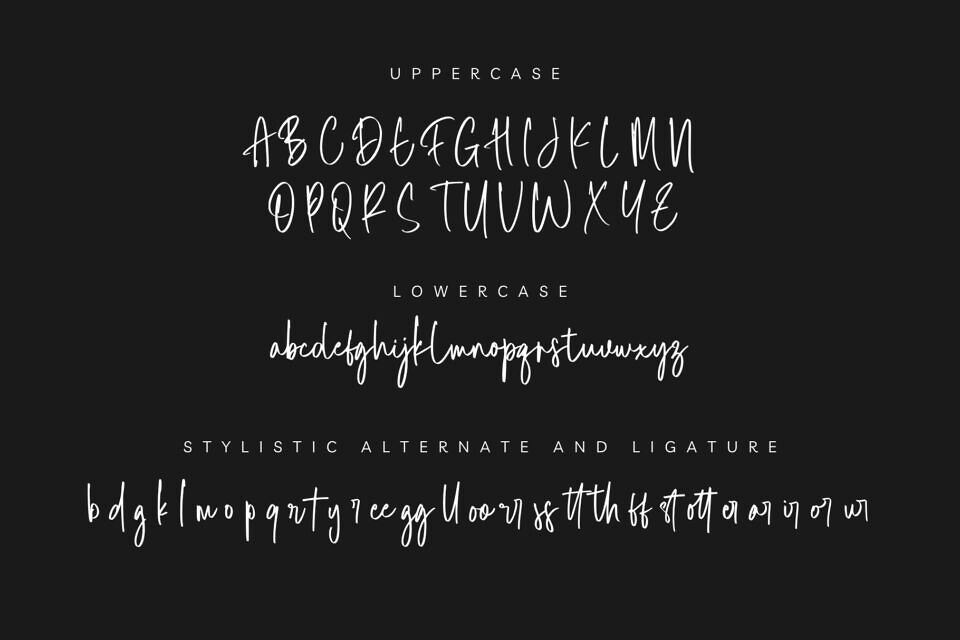 UPPERCASE
ABCDEFGHIJKLMN
OPQRSTUVWXYZ
LOWERCASE
abcdefghijklmnopqrstuvwxyz
STYLISTIC ALTERNATE AND LIGATURE
b d g k l m o p q r t y r ee gg ll oo rr ss tt th ff st ott er ar ir or ur